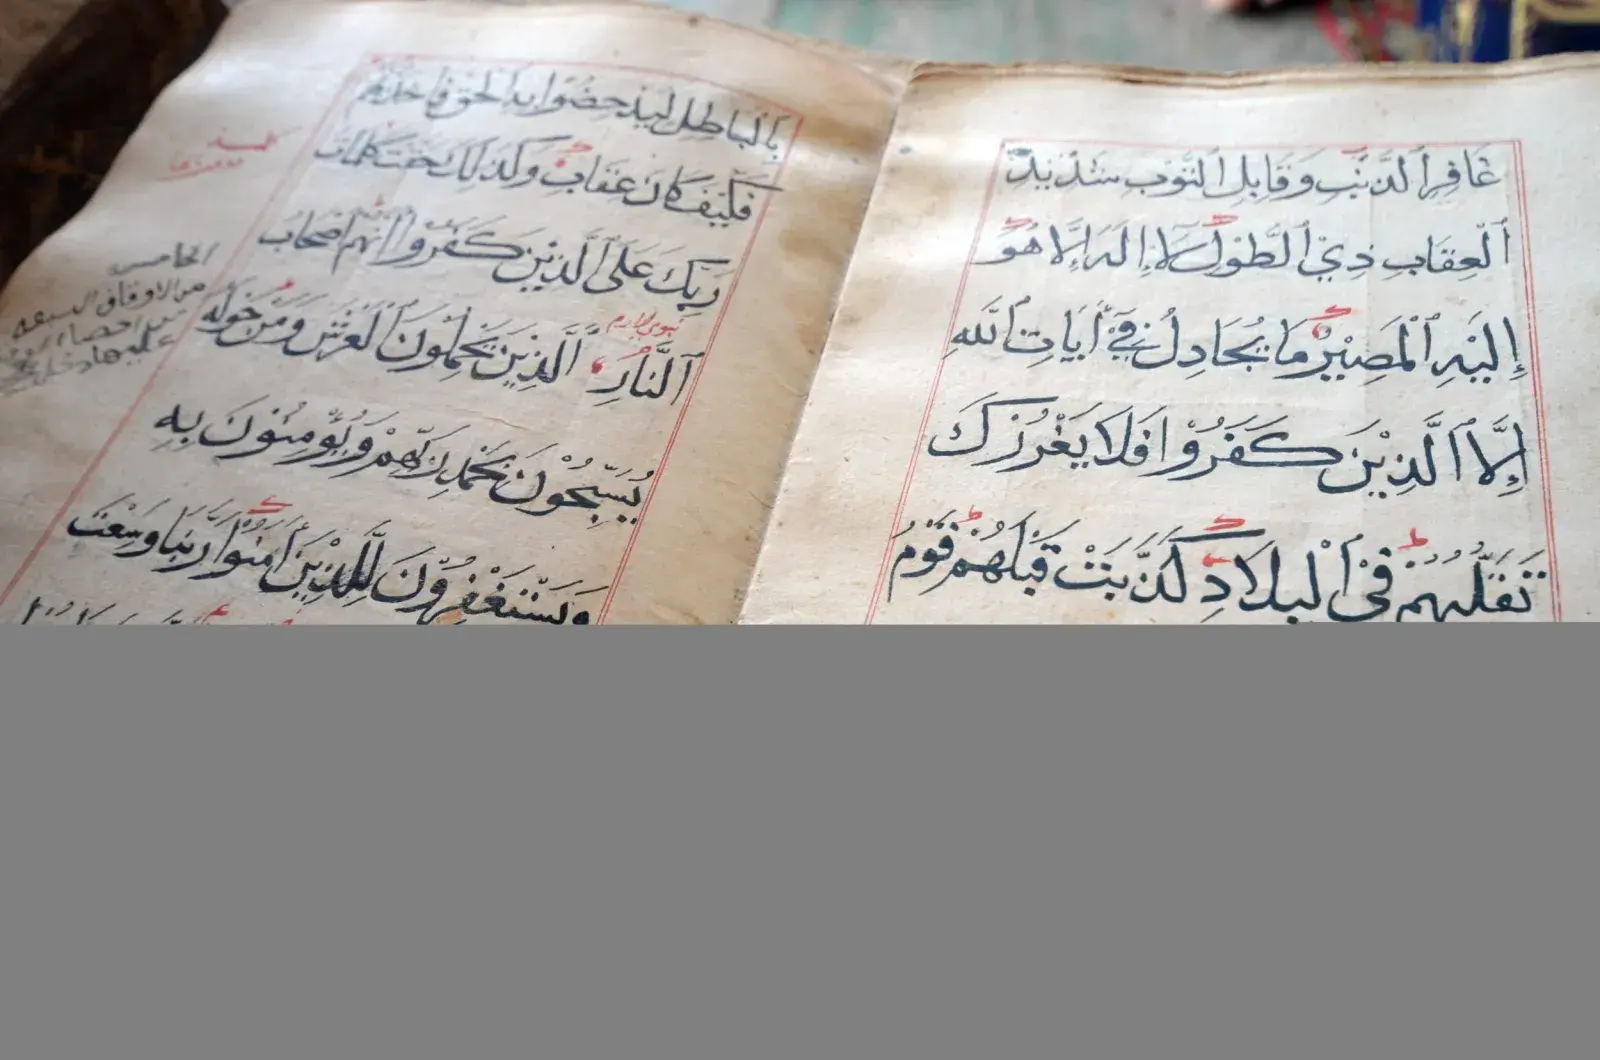 غَافِرِ ٱلذَّنْبِ وَقَابِلِ ٱلتَّوْبِ شَدِيدِ
ٱلْعِقَابِ ذِي ٱلطَّوْلِ لَا إِلَهَ إِلَّا هُوَ
إِلَيْهِ ٱلْمَصِيْرُ مَا يُجَادِلُ فِيٓ أَيَاتِ ٱللَّهِ
إِلَّا ٱلَّذِيْنَ كَفَرُوْا فَلَا يَغْرُرْكَ
تَقَلُّبُهُمْ فِي ٱلْبِلَادِ كَذَّبَتْ قَبْلَهُمْ قَوْمُ
بِالْبَاطِلِ لِيُدْحِضُوا بِهِ ٱلْحَقَّ فَأَخَذْتُهُمْ
فَكَيْفَ كَانَ عِقَابِ وَكَذَلِكَ حَقَّتْ كَلِمَاتُ
رَبِّكَ عَلَى ٱلَّذِيْنَ كَفَرُوا أَنَّهُمْ أَصْحَابُ
ٱلنَّارِ ٱلَّذِيْنَ يَحْمِلُونَ ٱلْعَرْشَ وَمَنْ حَوْلَهُ
يُسَبِّحُوْنَ بِحَمْدِ رَبِّهِمْ وَيُؤْمِنُوْنَ بِهِ
وَيَسْتَغْفِرُوْنَ لِلَّذِيْنَ أَمَنُوْا رَبَّنَا وَسِعْتَ
الخامس
من الاوقاف السبعة